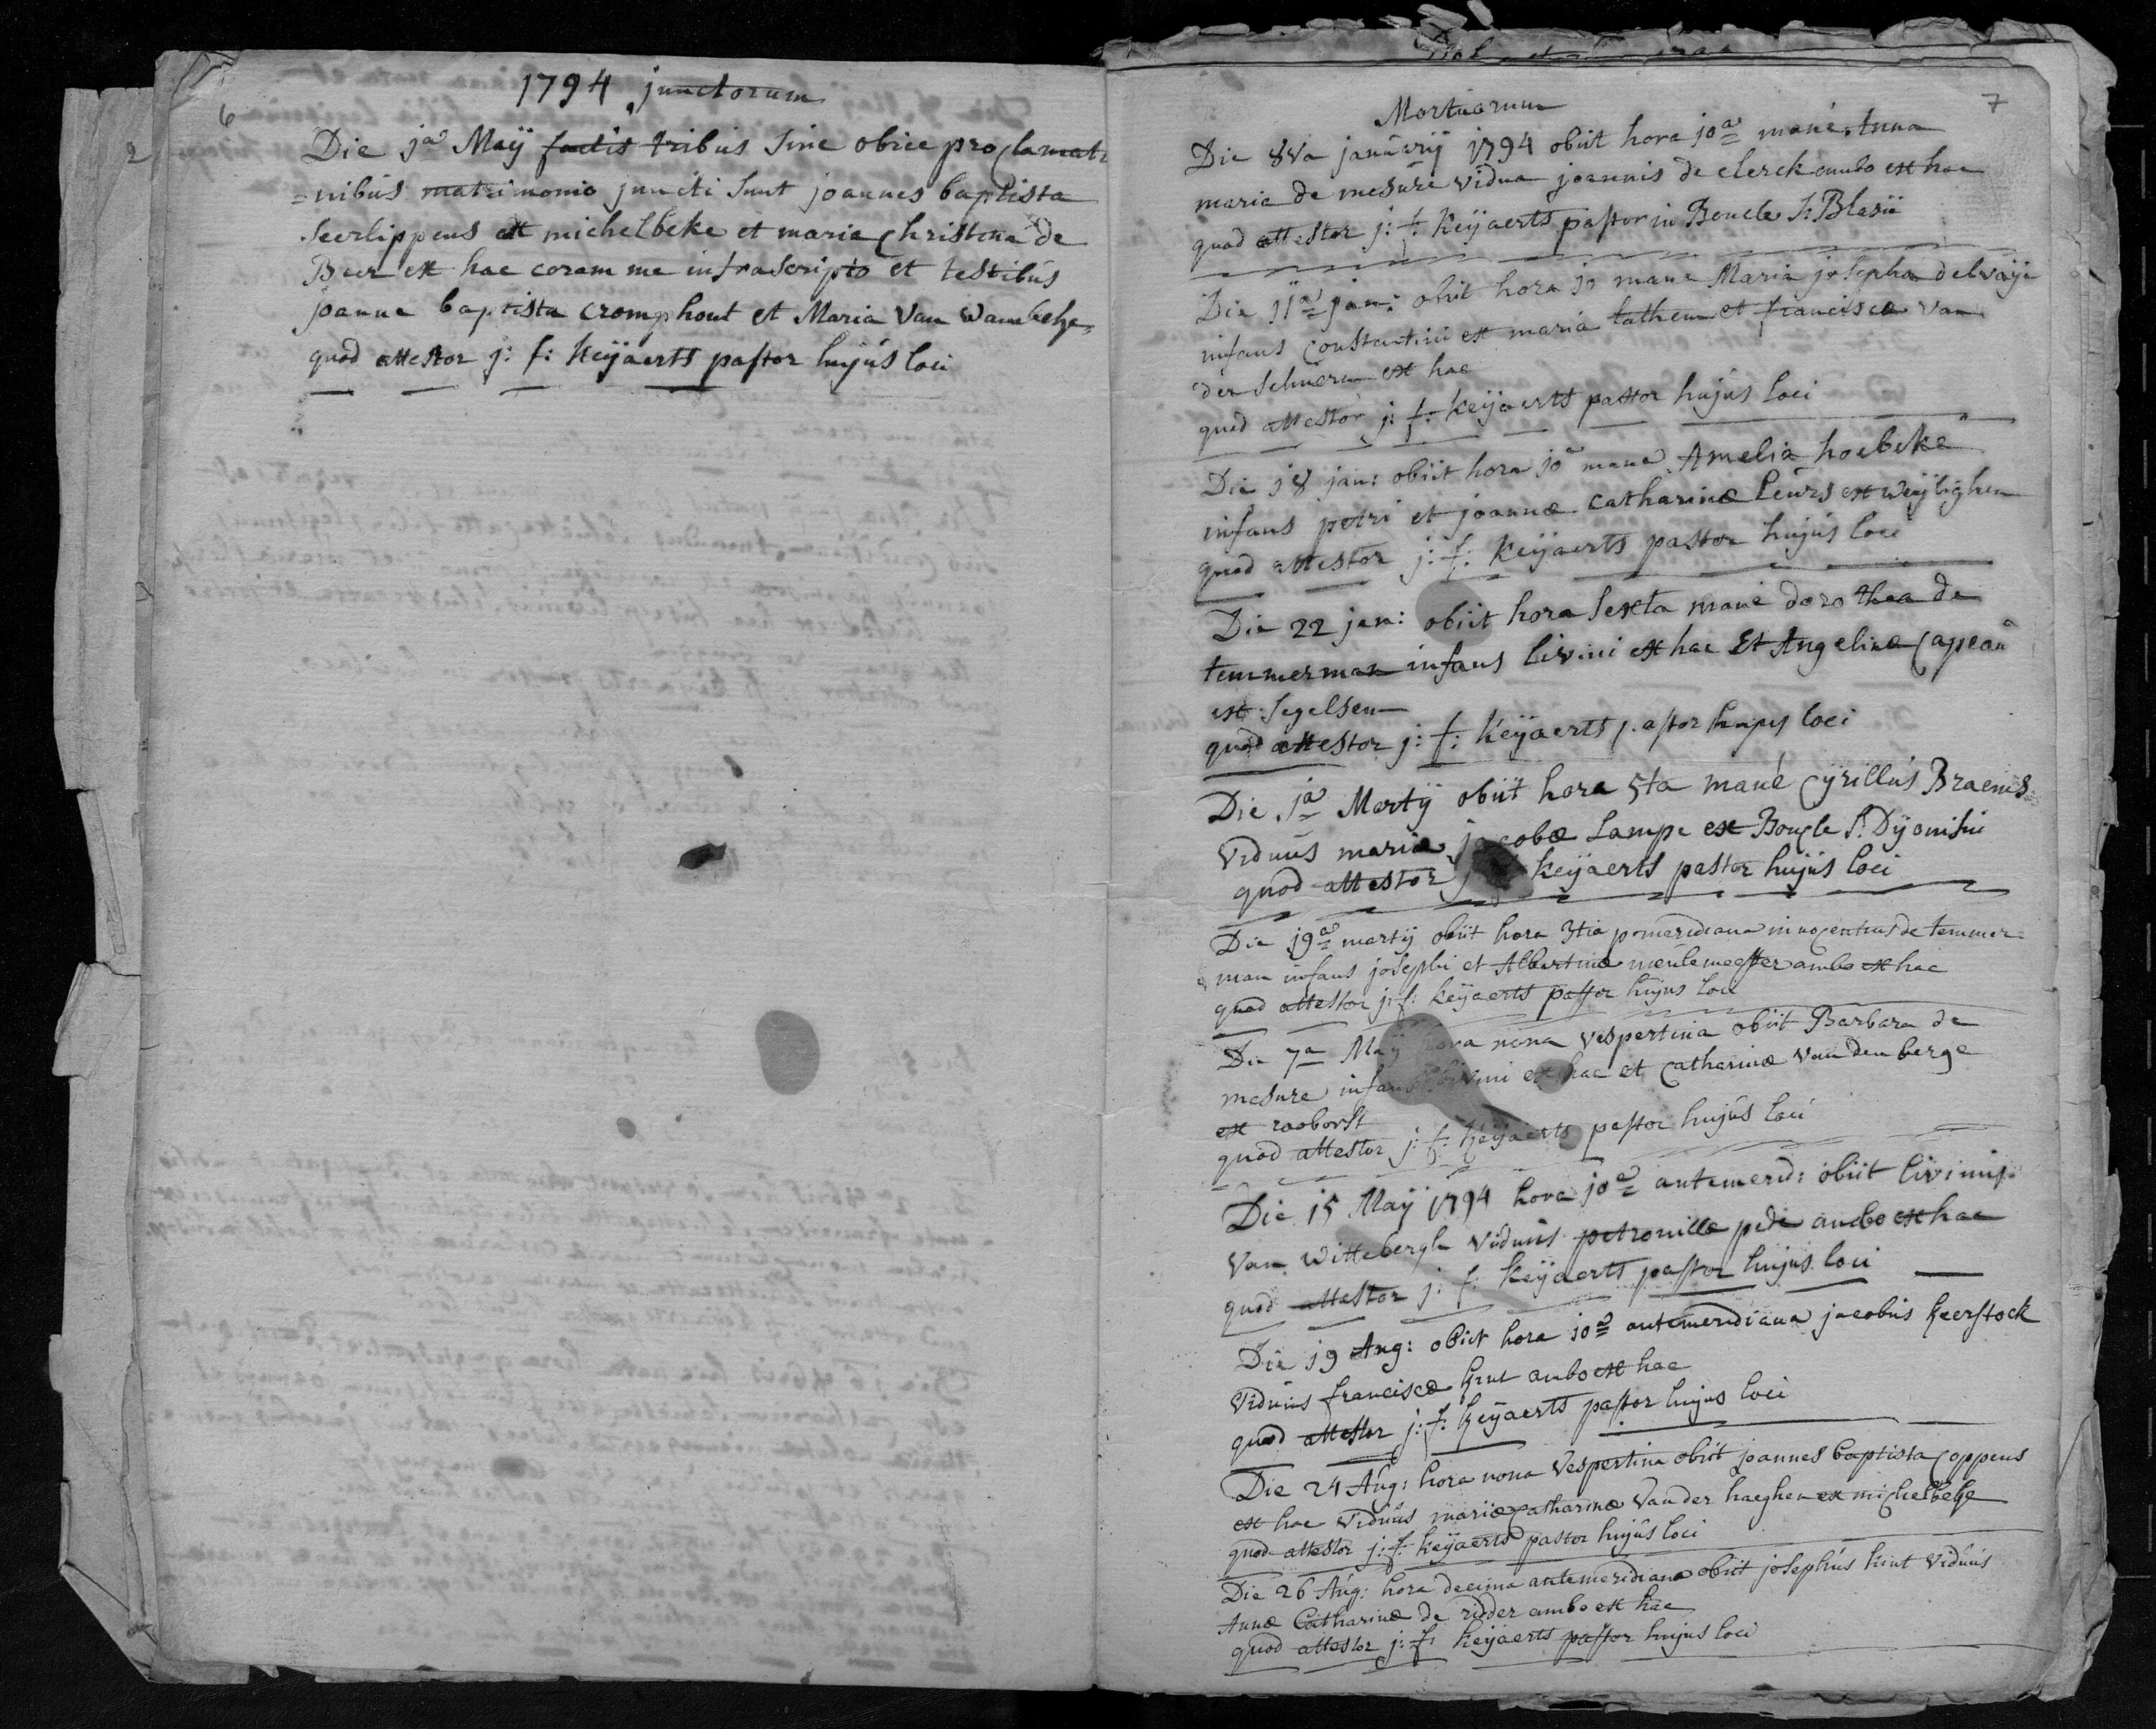 6
1794 junctorum
Die ja Maÿ factis tribus sine obice proclamati
=nibus matrimonio juncti sunt joannes baptista
seerlippens ex michelbeke et maria christina de
Beer ex hac coram me infrascripto et testibus
joanne baptista cromphout et Maria Van Wambeke
quod attestor j: f: Keÿaerts pastor hujus loci
2
7
Mortuorum
Die 8va januarij 1794 obiit hora joa mane Anna
maria de mesure vidua joannis de clerck ambo ex hac
quod attestor j: f: Keÿaerts pastor in Boucle S: Blasii
Die jja jan: obiit hora jo mane Maria josepha delvaije
infans Constantini ex maria lathem et francisca van
der schueren ex hac
quod attestor j: f: Keÿaerts pastor hujus loci
Die j8 jan: obiit hora joa mane Amelia hoebeke
infans petri et joannæ Catharinæ leurs ex weijlighen
quod attestor j: f: Keÿaerts pastor hujus loci
Die 22 jan: obiit hora sexta mane dorothea de
temmerman infans livini ex hac Et Angelinæ Capeau
ex segelsen
quod attestor j: f: Keÿaerts pastor hujus loci
Die ja Martij obiit hora 5ta mane Cyrillus Braems
viduus mariæ jacobæ Lampe ex Boucle S: Dyonisii
quod attestor j Keÿaerts pastor hujus loci
Die j9a martij obiit hora 3tia pomeridiana innocentius de temmer=
man infans josephi et Albertinæ meulemeester ambo ex hac
quod attestor j: f: Keÿaerts pastor hujus loci
Die 7a Maÿ hora nona vespertina obiit Barbara de
mesure infans livini ex hac et Catharinæ van den berge
ex rooborst
quod attestor j: f: Keÿaerts pastor hujus loci
Die 15 Maÿ 1794 hora joa antemerid: obiit livinus
Van Wittebergh viduus petronillæ pede ambo ex hac
quod attestor j: f: Keÿaerts pastor hujus loci
Die j9 Aug: obiit hora joa antemeridiana jacobus Keerstock
viduus franciscæ Kint ambo ex hac
quod attestor j: f: Keÿaerts pastor hujus loci
Die 24 Aug: hora nona vespertina obiit joannes baptista Coppens
ex hac viduus mariæ Catharinæ Van der haeghen ex michelbeke
quod attestor j: f: Keÿaerts pastor hujus loci
Die 26 Aug: hora decima antemeridiana obiit josephus Kint viduus
Annæ Catharinæ de ridder ambo ex hac
quod attestor j: f: Keÿaerts pastor hujus loci